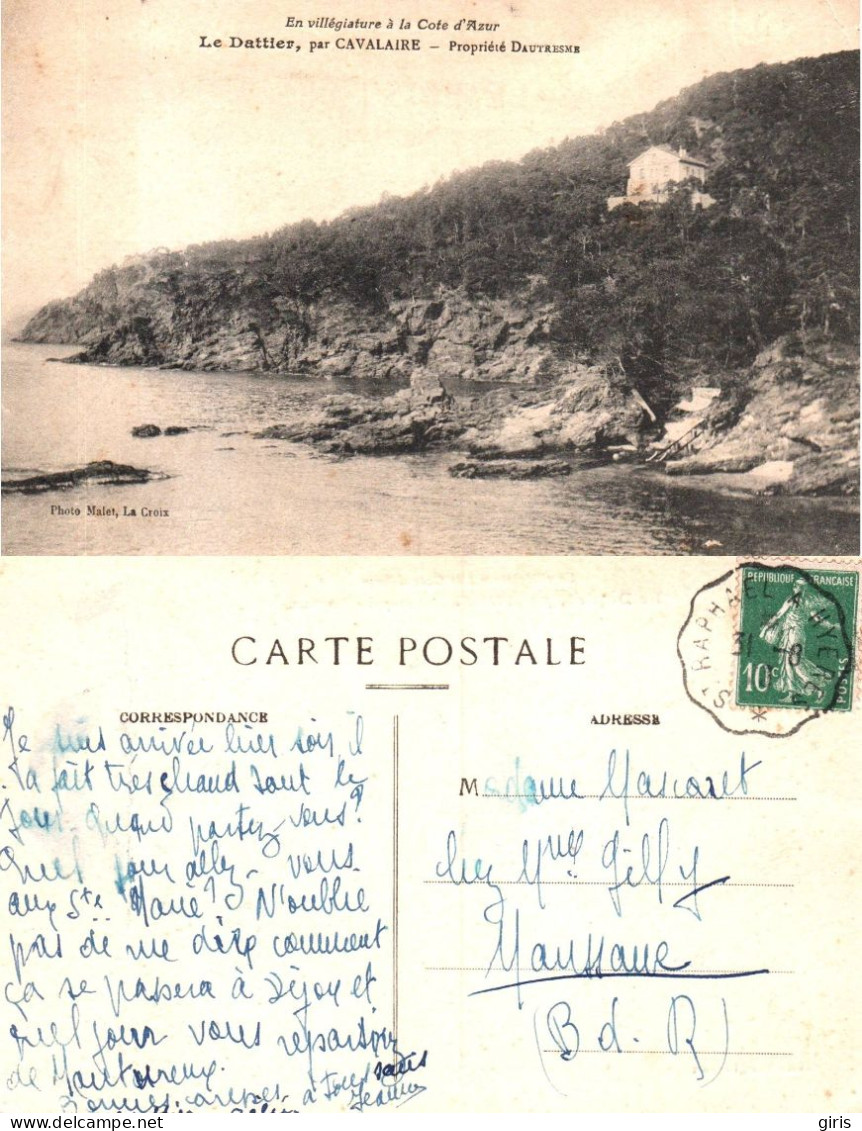 En villégiature à la Cote d'Azur
Le Dattier, par CAVALAIRE – Propriété DAUTRESME
Photo Malet, La Croix
CARTE POSTALE
RÉPUBLIQUE FRANÇAISE
10c
POSTES
St RAPHAEL A HYERES
31 -8
CORRESPONDANCE
Je suis arrivée hier soir, il
a fait très chaud tout le
jour. Quand partez-vous?
Quel jour allez-vous
aux Stes Marie? N'oublie
pas de me dire comment
ça se passera à Dijon et
quel jour vous
de
Bonnes à tous
ADRESSE
Madame Mascaret
chez Mme Gilly
Maussane
(B d. R)
delcampe.net
giris